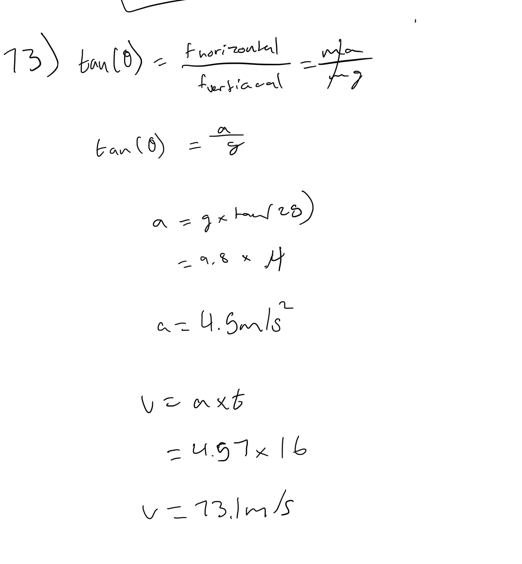 13) tan(θ) = fhorizontal / fvertiacal = ma / mg
tan(θ) = a / g
a = g x tan(28)
= 9.8 x
a = 4.5m/s²
v = a x t
= 4.57 x 16
v = 73.1m/s